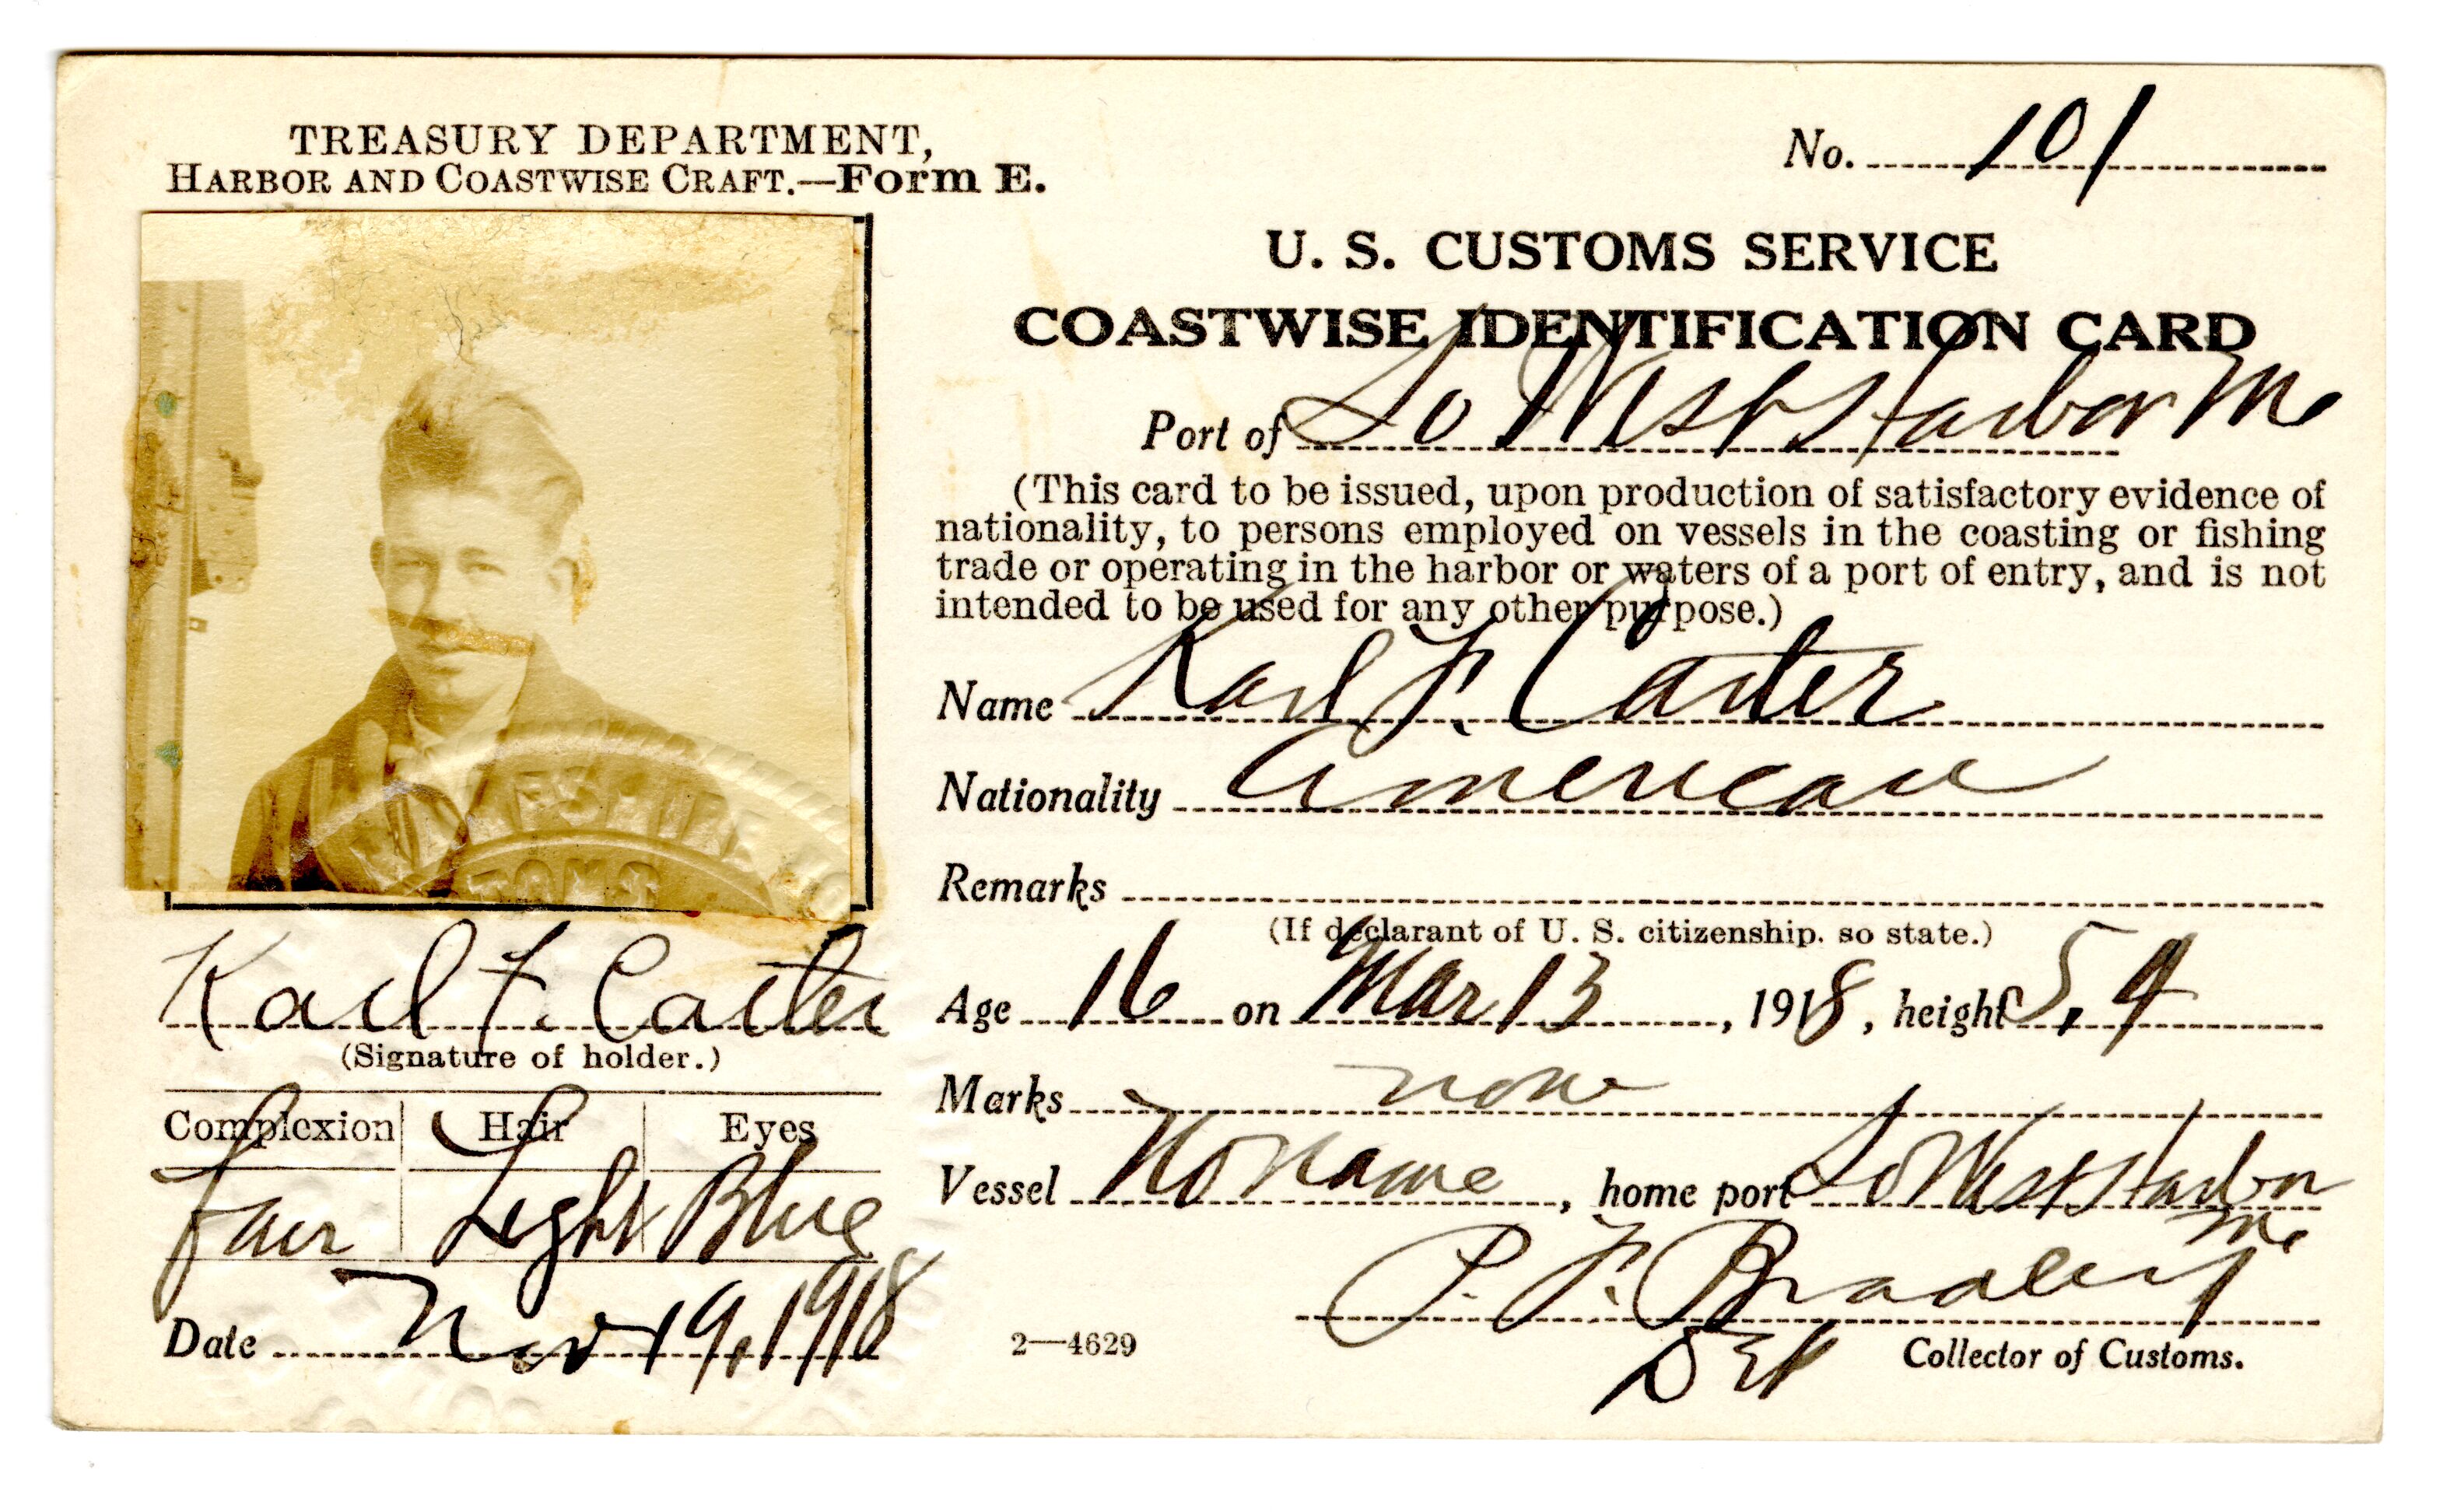 TREASURY DEPARTMENT,
HARBOR AND COASTWISE CRAFT.—Form E.
No. 101
U. S. CUSTOMS SERVICE
COASTWISE IDENTIFICATION CARD
Port of So West Harbor Me
(This card to be issued, upon production of satisfactory evidence of
nationality, to persons employed on vessels in the coasting or fishing
trade or operating in the harbor or waters of a port of entry, and is not
intended to be used for any other purpose.)
Name Karl F. Carter
Nationality American
Remarks
(If declarant of U. S. citizenship, so state.)
Age 16 on Mar 13, 1918, height 5,4
Marks none
Vessel No name, home port So West Harbor
Me
P. F. Bradley
Dep Collector of Customs.
2—4629
TOMS
Karl F. Carter
(Signature of holder.)
Complexion Hair Eyes
Fair Light Blue
Date Nov 19, 1918